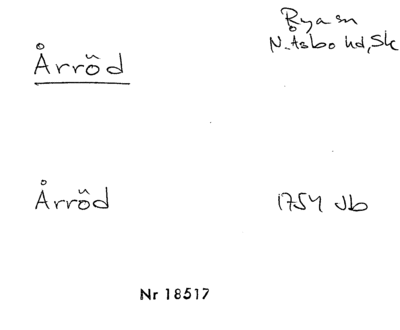 Årröd
Rya sn
N. Åsbo hd, Sk
Årröd
1754 Jb
Nr 18517